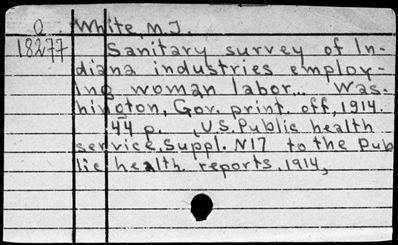 O White, M.J.
18277 Sanitary survey of In-
diana industries employ-
ing woman labor... Was-
hington, Gov. print. off, 1914.
44 p. (U.S. Public health
service, Suppl. N17 to the Pub
lic health reports, 1914,